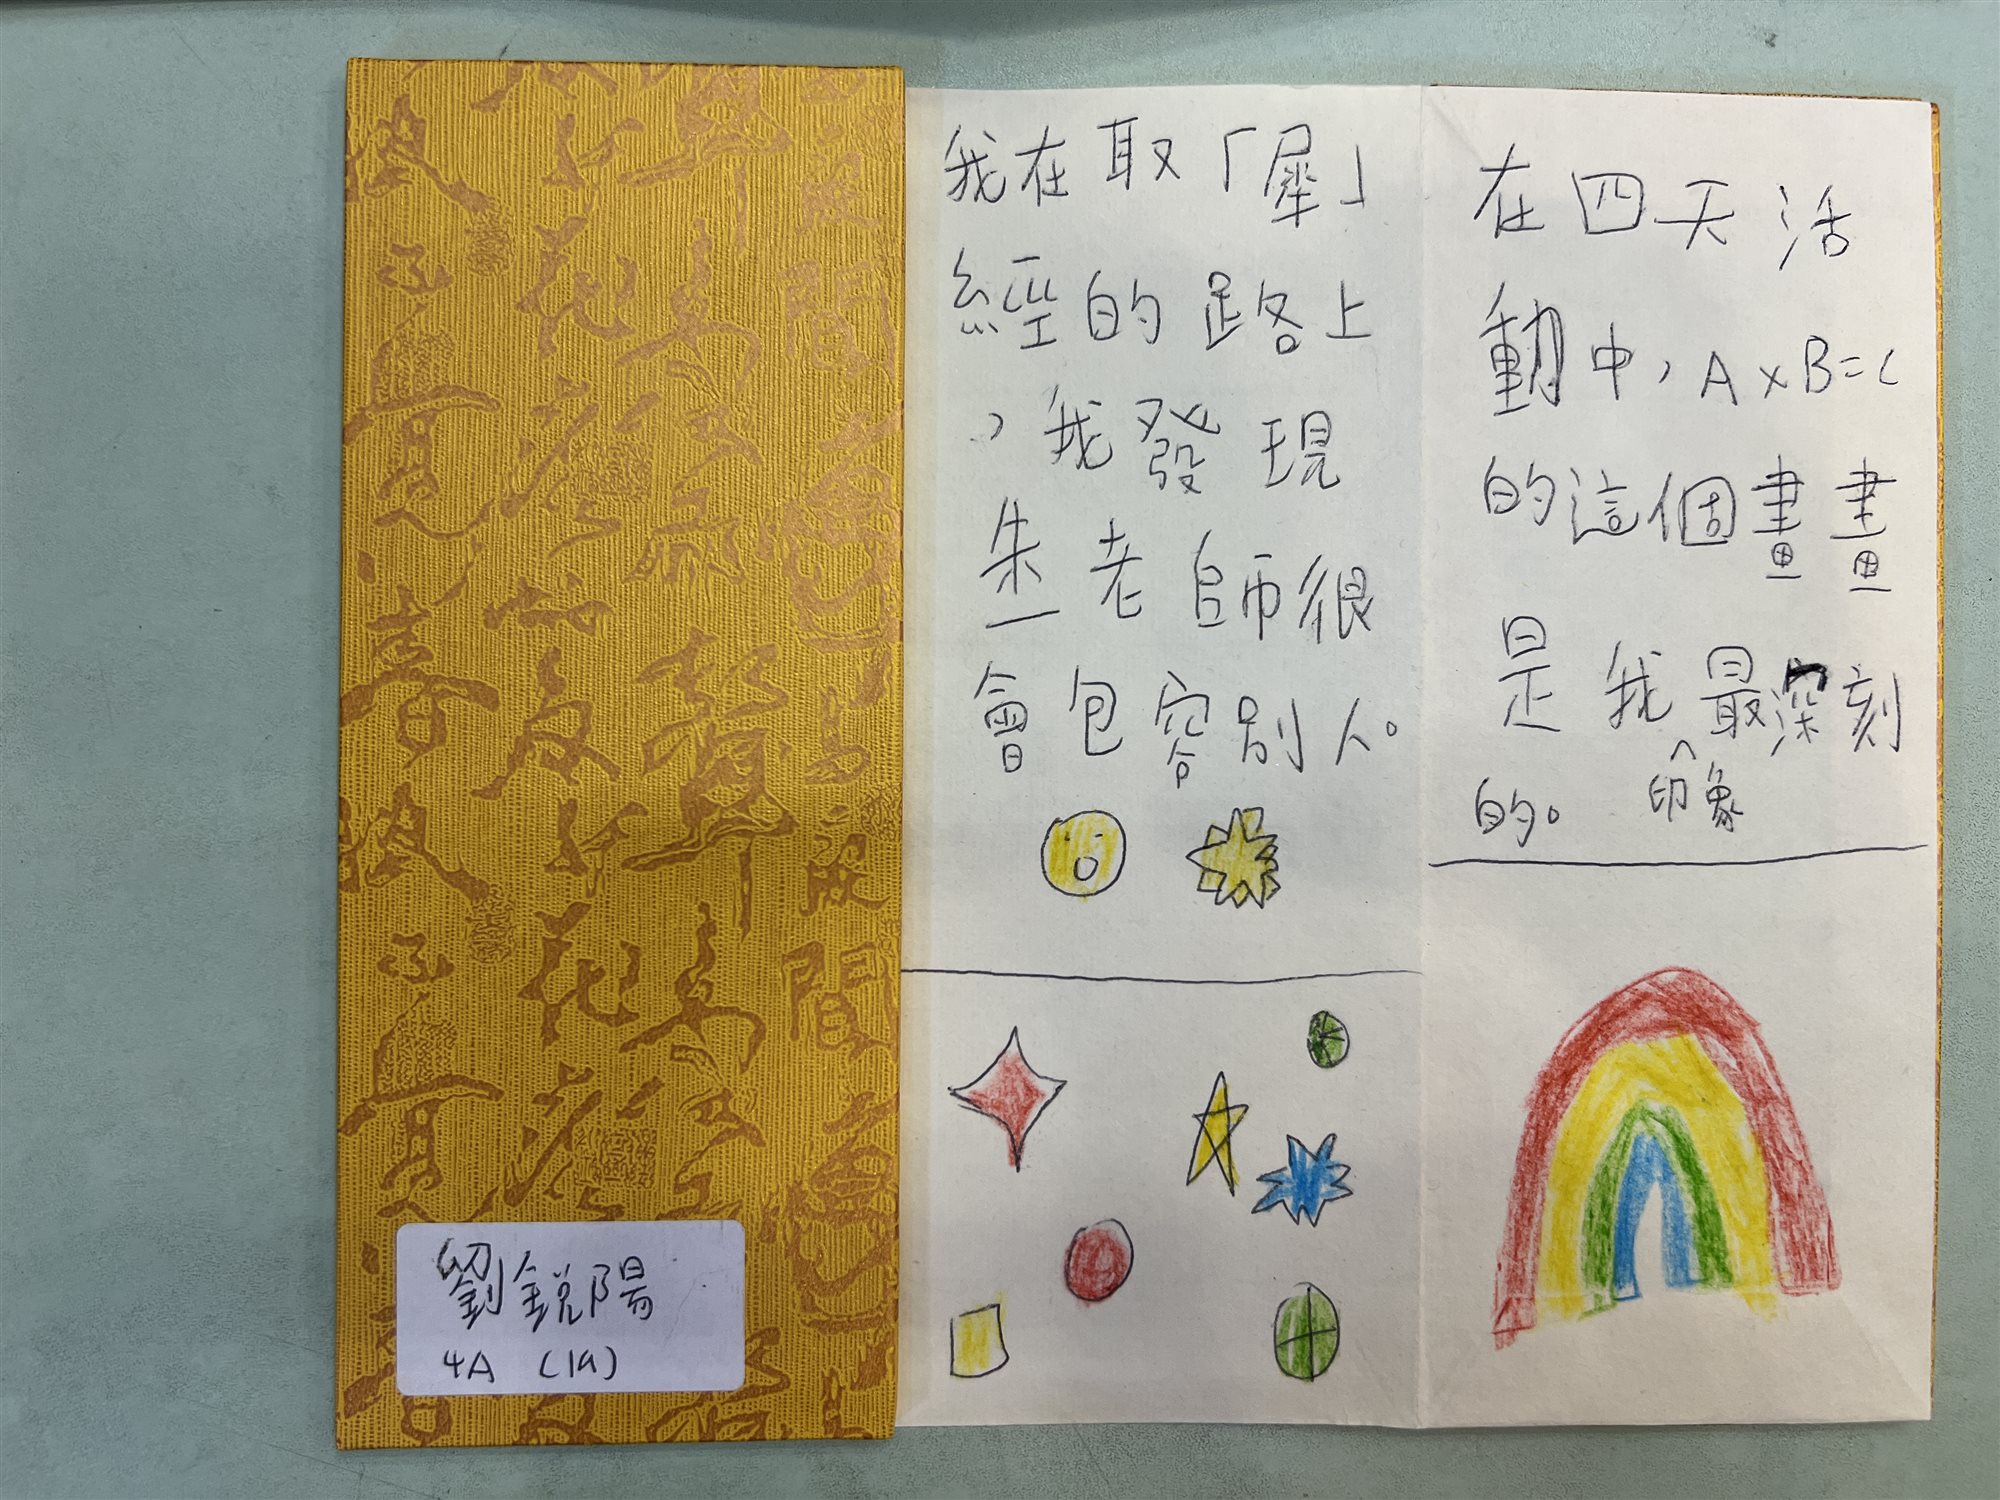 我在取「犀」
經的路上
，我發現
朱老師很
會包容別人。
在四天活
動中，A×B=C
的這個畫畫
是我最深刻
印象
的。
劉銳陽
4A (19)